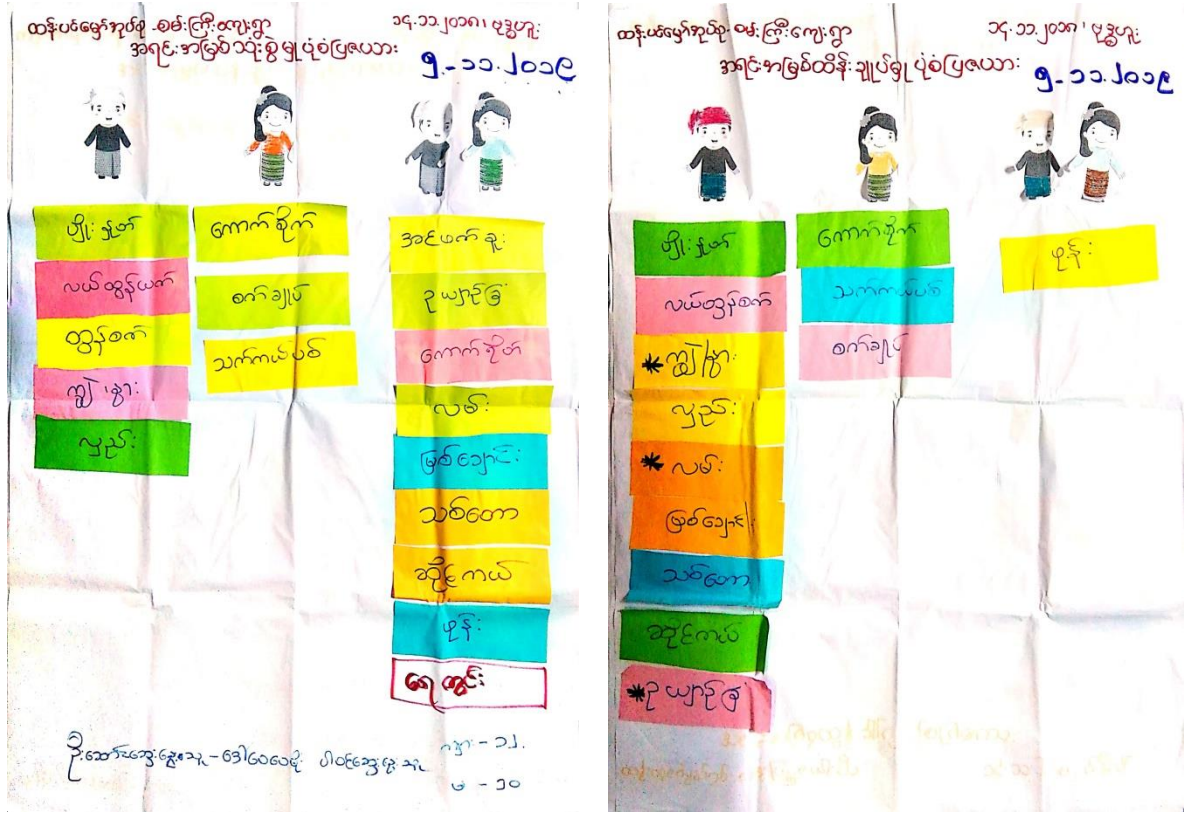 ထန်းပင်မှော်အုပ်စု စမ်းကြီးကျေးရွာ
၁၄.၁၁.၂၀၁၈၊ ဗုဒ္ဓဟူး
အရင်းအမြစ်သုံးစွဲမှုပုံစံပြဇယား
၅-၁၁.၂၀၁၉
ပျိုးနှုတ်
လယ်ထွန်ယက်
ထွန်စက်
ကျွဲ၊နွား
လှည်း
ကောက်စိုက်
စက်ချုပ်
သက်ကယ်ပစ်
အင်ဖက်ခူး
ဥယျာဉ်ခြံ
ကောက်စိုက်
လမ်း
မြစ်ချောင်း
သစ်တော
ဆိုင်ကယ်
ဖုန်း
ရေတွင်း
ကျား - ၁၂
မ - ၁၀
ထန်းပင်မှော်အုပ်စု စမ်းကြီးကျေးရွာ
၁၄.၁၁.၂၀၁၈၊ ဗုဒ္ဓဟူး
အရင်းအမြစ်ထိန်းချုပ်မှုပုံစံပြဇယား
၅-၁၁.၂၀၁၉
ပျိုးနှုတ်
လယ်ထွန်စက်
* ကျွဲ/နွား
လှည်း
* လမ်း
မြစ်ချောင်း
သစ်တော
ဆိုင်ကယ်
* ဥယျာဉ်ခြံ
ကောက်စိုက်
သက်ကယ်ပစ်
စက်ချုပ်
ဖုန်း